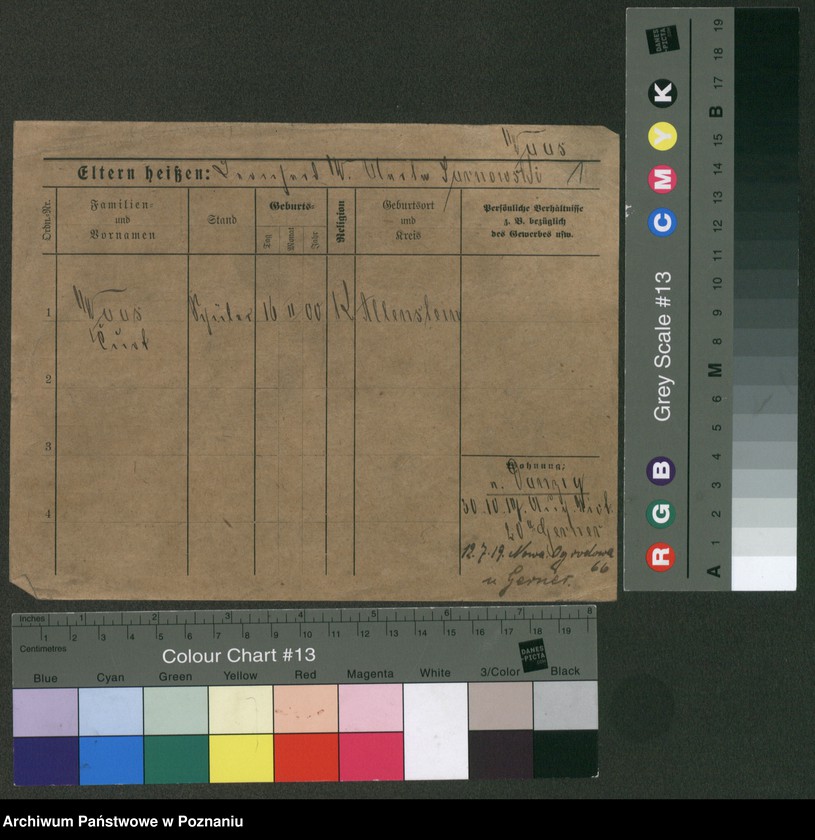 Waas
Eltern heißen: W. 1
Ordn.-Nr.
Familien- und Vornamen
Stand
Geburts-
Tag
Monat
Jahr
Religion
Geburtsort und Kreis
Persönliche Verhältnisse
z. B. bezüglich
des Gewerbes usw.
1
Waas
Curt
Schüler 16 11 00 K Allenstein
2
3
4
Wohnung:
n. Danzig
30.10.19.
12.7.19. Nowa Ogrodowa
66
u Gerner.
Grey Scale #13
DANES
PICTA
.COM
R G B C M Y K
A 1 2 3 4 5 6 M 8 9 10 11 12 13 14 15 B 17 18 19
Inches 1 2 3 4 5 6 7 8
1 2 3 4 5 6 7 8 9 10 11 12 13 14 15 16 17 18 19
Centimetres
Colour Chart #13
DANES
PICTA
.COM
Blue Cyan Green Yellow Red Magenta White 3/Color Black
Archiwum Państwowe w Poznaniu